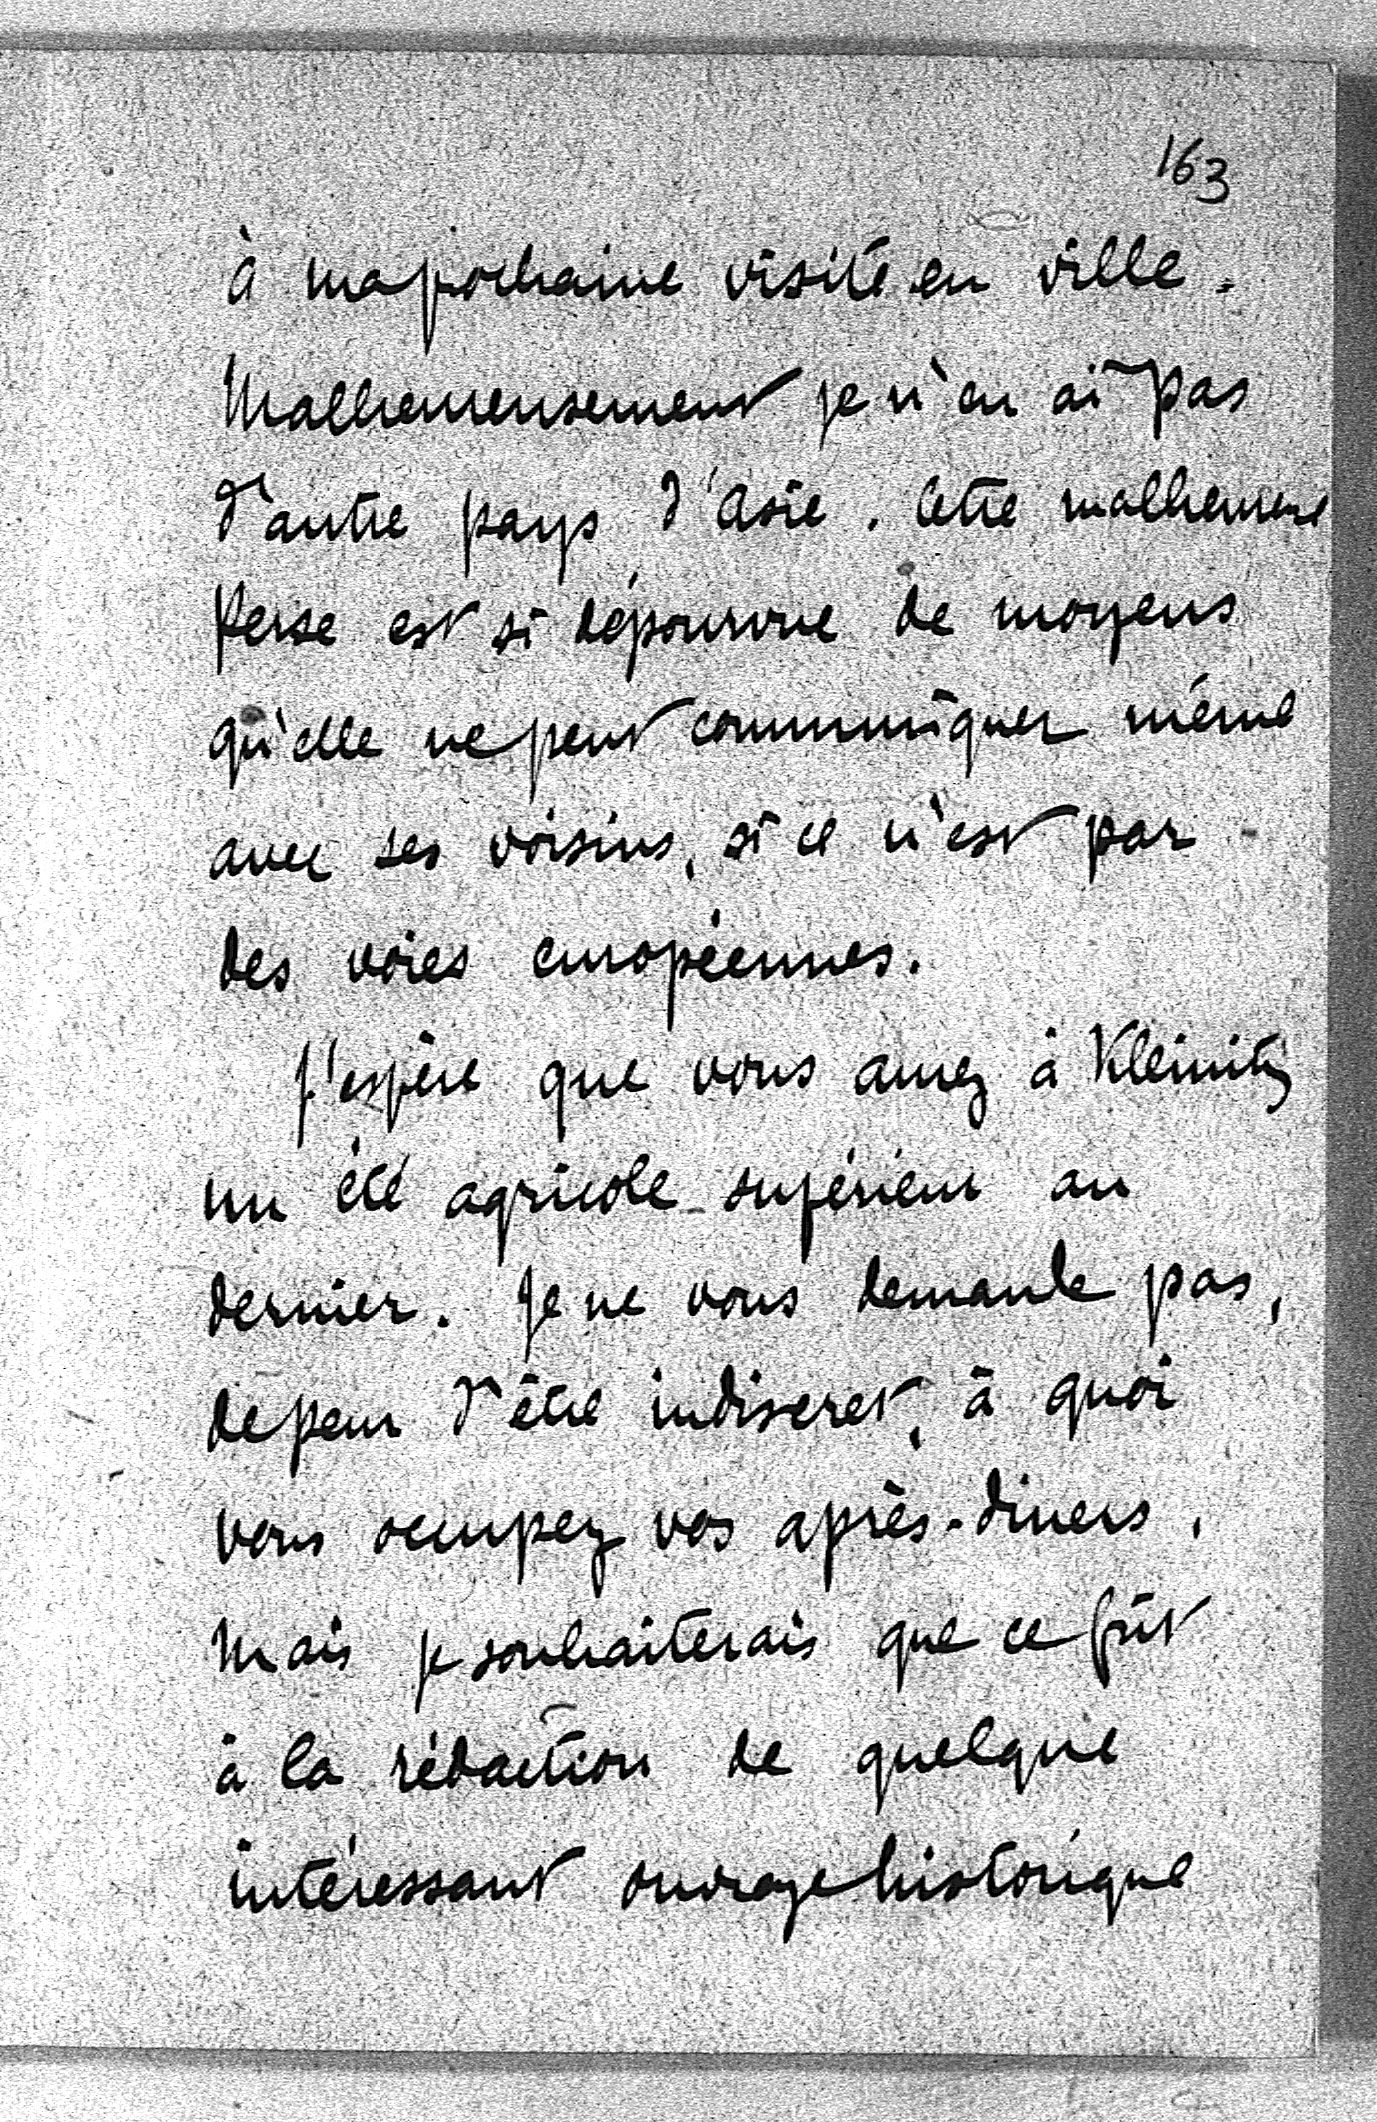 163
à ma prochaine visite en ville.
Malheureusement je n'en ai pas
d'autre pays d'Asie. Cette malheureuse
Perse est si dépourvue de moyens
qu'elle ne peut communiquer même
avec ses voisins, si ce n'est par
des voies européennes.
J'espère que vous aurez à Kleinitz
un été agricole supérieur au
dernier. Je ne vous demande pas,
de peur d'être indiscret, à quoi
vous occupez vos après-diners,
mais je souhaiterais que ce fût
à la rédaction de quelque
intéressant ouvrage historique